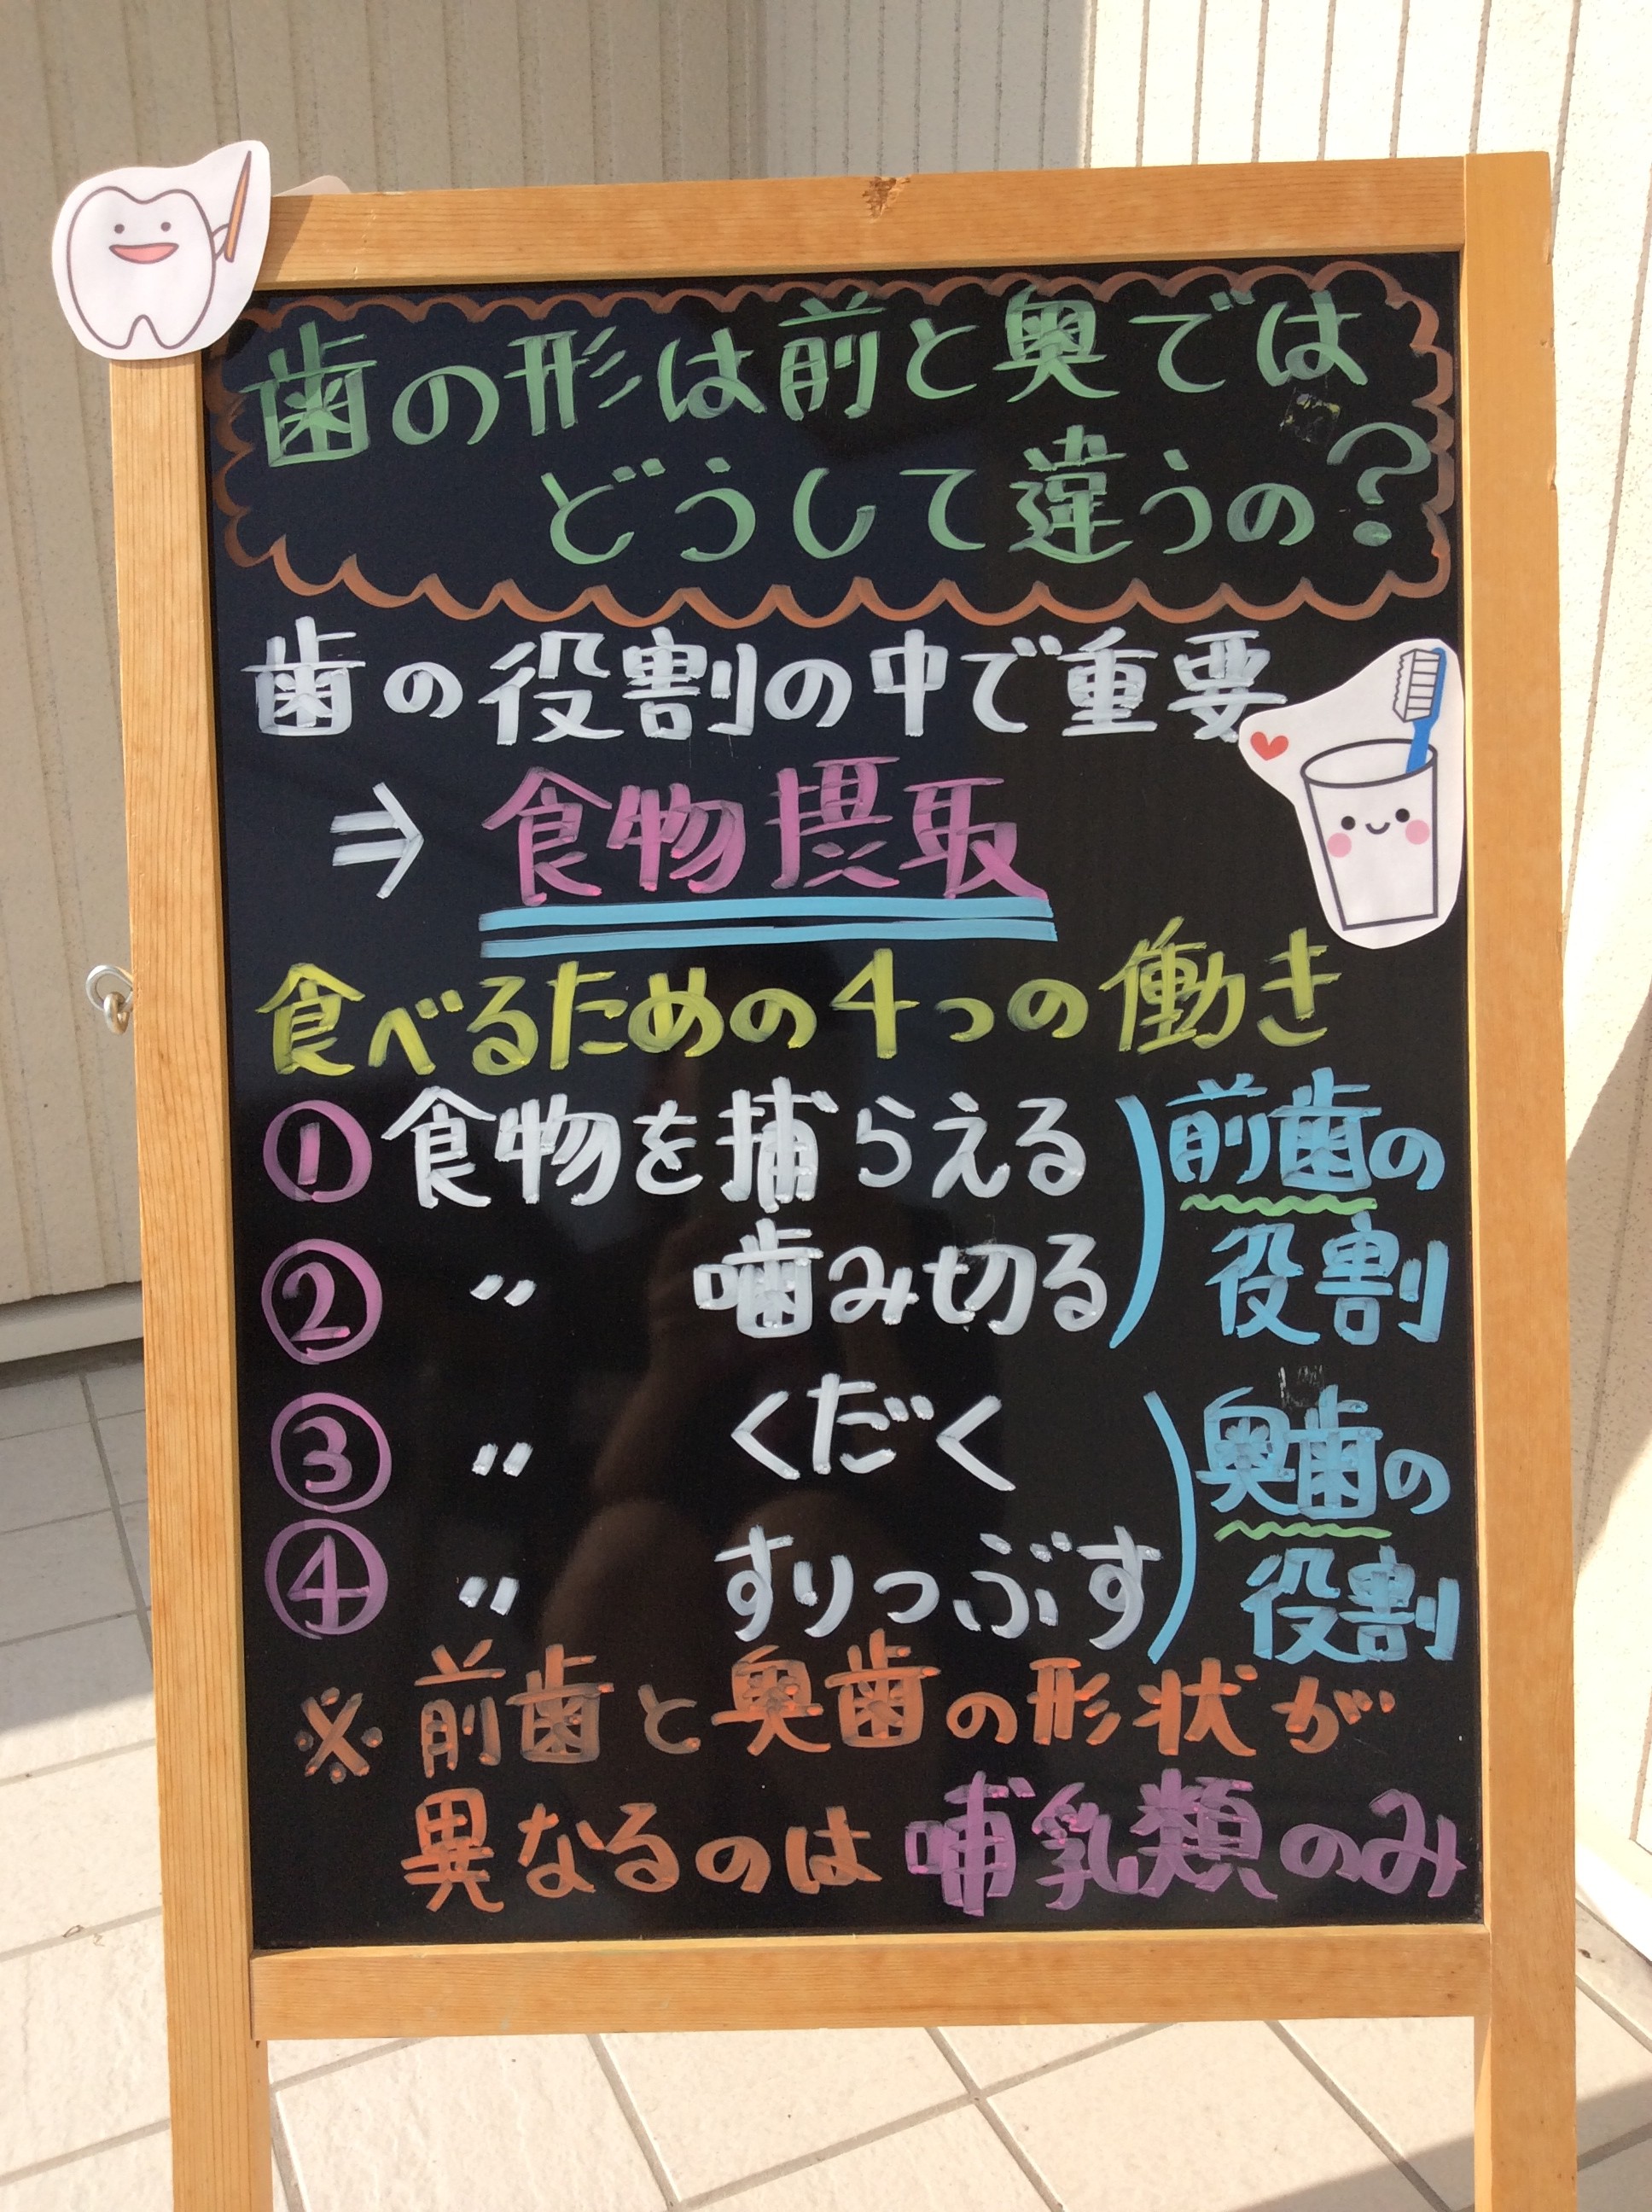 歯の形は前と奥では
どうして違うの?
歯の役割の中で重要
⇒ 食物摂取
食べるための4つの働き
①食物を捕らえる
② 〃 噛み切る
前歯の
役割
③ 〃 くだく
④ 〃 すりつぶす
奥歯の
役割
※前歯と奥歯の形状が
異なるのは哺乳類のみ